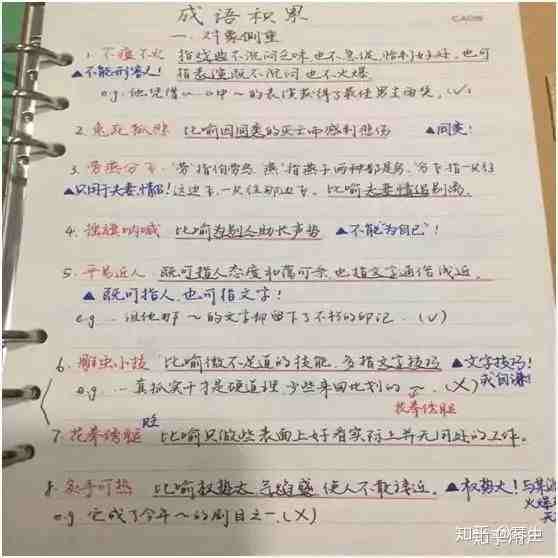 成语积累
一. 对象侧重
1. 不瘟不火 指戏曲不沉闷乏味也不急促，恰到好处，也可
▲不能形容人！ 指表演既不沉闷也不火爆
e.g. 他凭借……中～的表演获得了最佳男主角奖。(√)
2. 兔死狐悲 比喻因同类的灭亡而感到悲伤 ▲同类！
3. 劳燕分飞 "劳"指伯劳鸟 "燕"指燕子两种都是鸟，"分飞"指一只往
▲只用于夫妻，情侣！这边飞，一只往那边飞，比喻夫妻情侣别离。
4. 摇旗呐喊 比喻为别人助长声势 ▲不能"为自己"！
5. 平易近人 既可指人态度和蔼可亲，也指文字通俗浅近。
▲既可指人，也可指文字！
e.g. 但他那～的文字却留下了不朽的印记。(√)
6. 雕虫小技 比喻微不足道的技能，多指文字技巧 ▲文字技巧！
或自谦！
e.g. …真抓实干才是硬道理，少些来回比划的～。(X)
花拳绣腿
腿
7. 花拳绣腿 比喻只做些表面上好看实际上并无用处的工作。
8. 炙手可热 比喻权势大，气焰盛，使人不敢接近。 ▲权势大！与某
火爆
e.g 它成了今年～的剧目之一。(X)
知乎